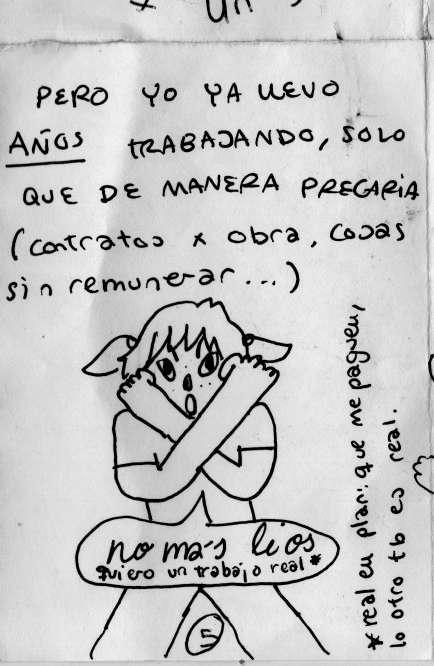 un
PERO YO YA LLEVO
AÑOS TRABAJANDO, SOLO
QUE DE MANERA PRECARIA
(contratos x obra, cosas
sin remunerar...)
no más líos
quiero un trabajo real*
5
*real en plan: que me paguen,
lo otro tb es real.